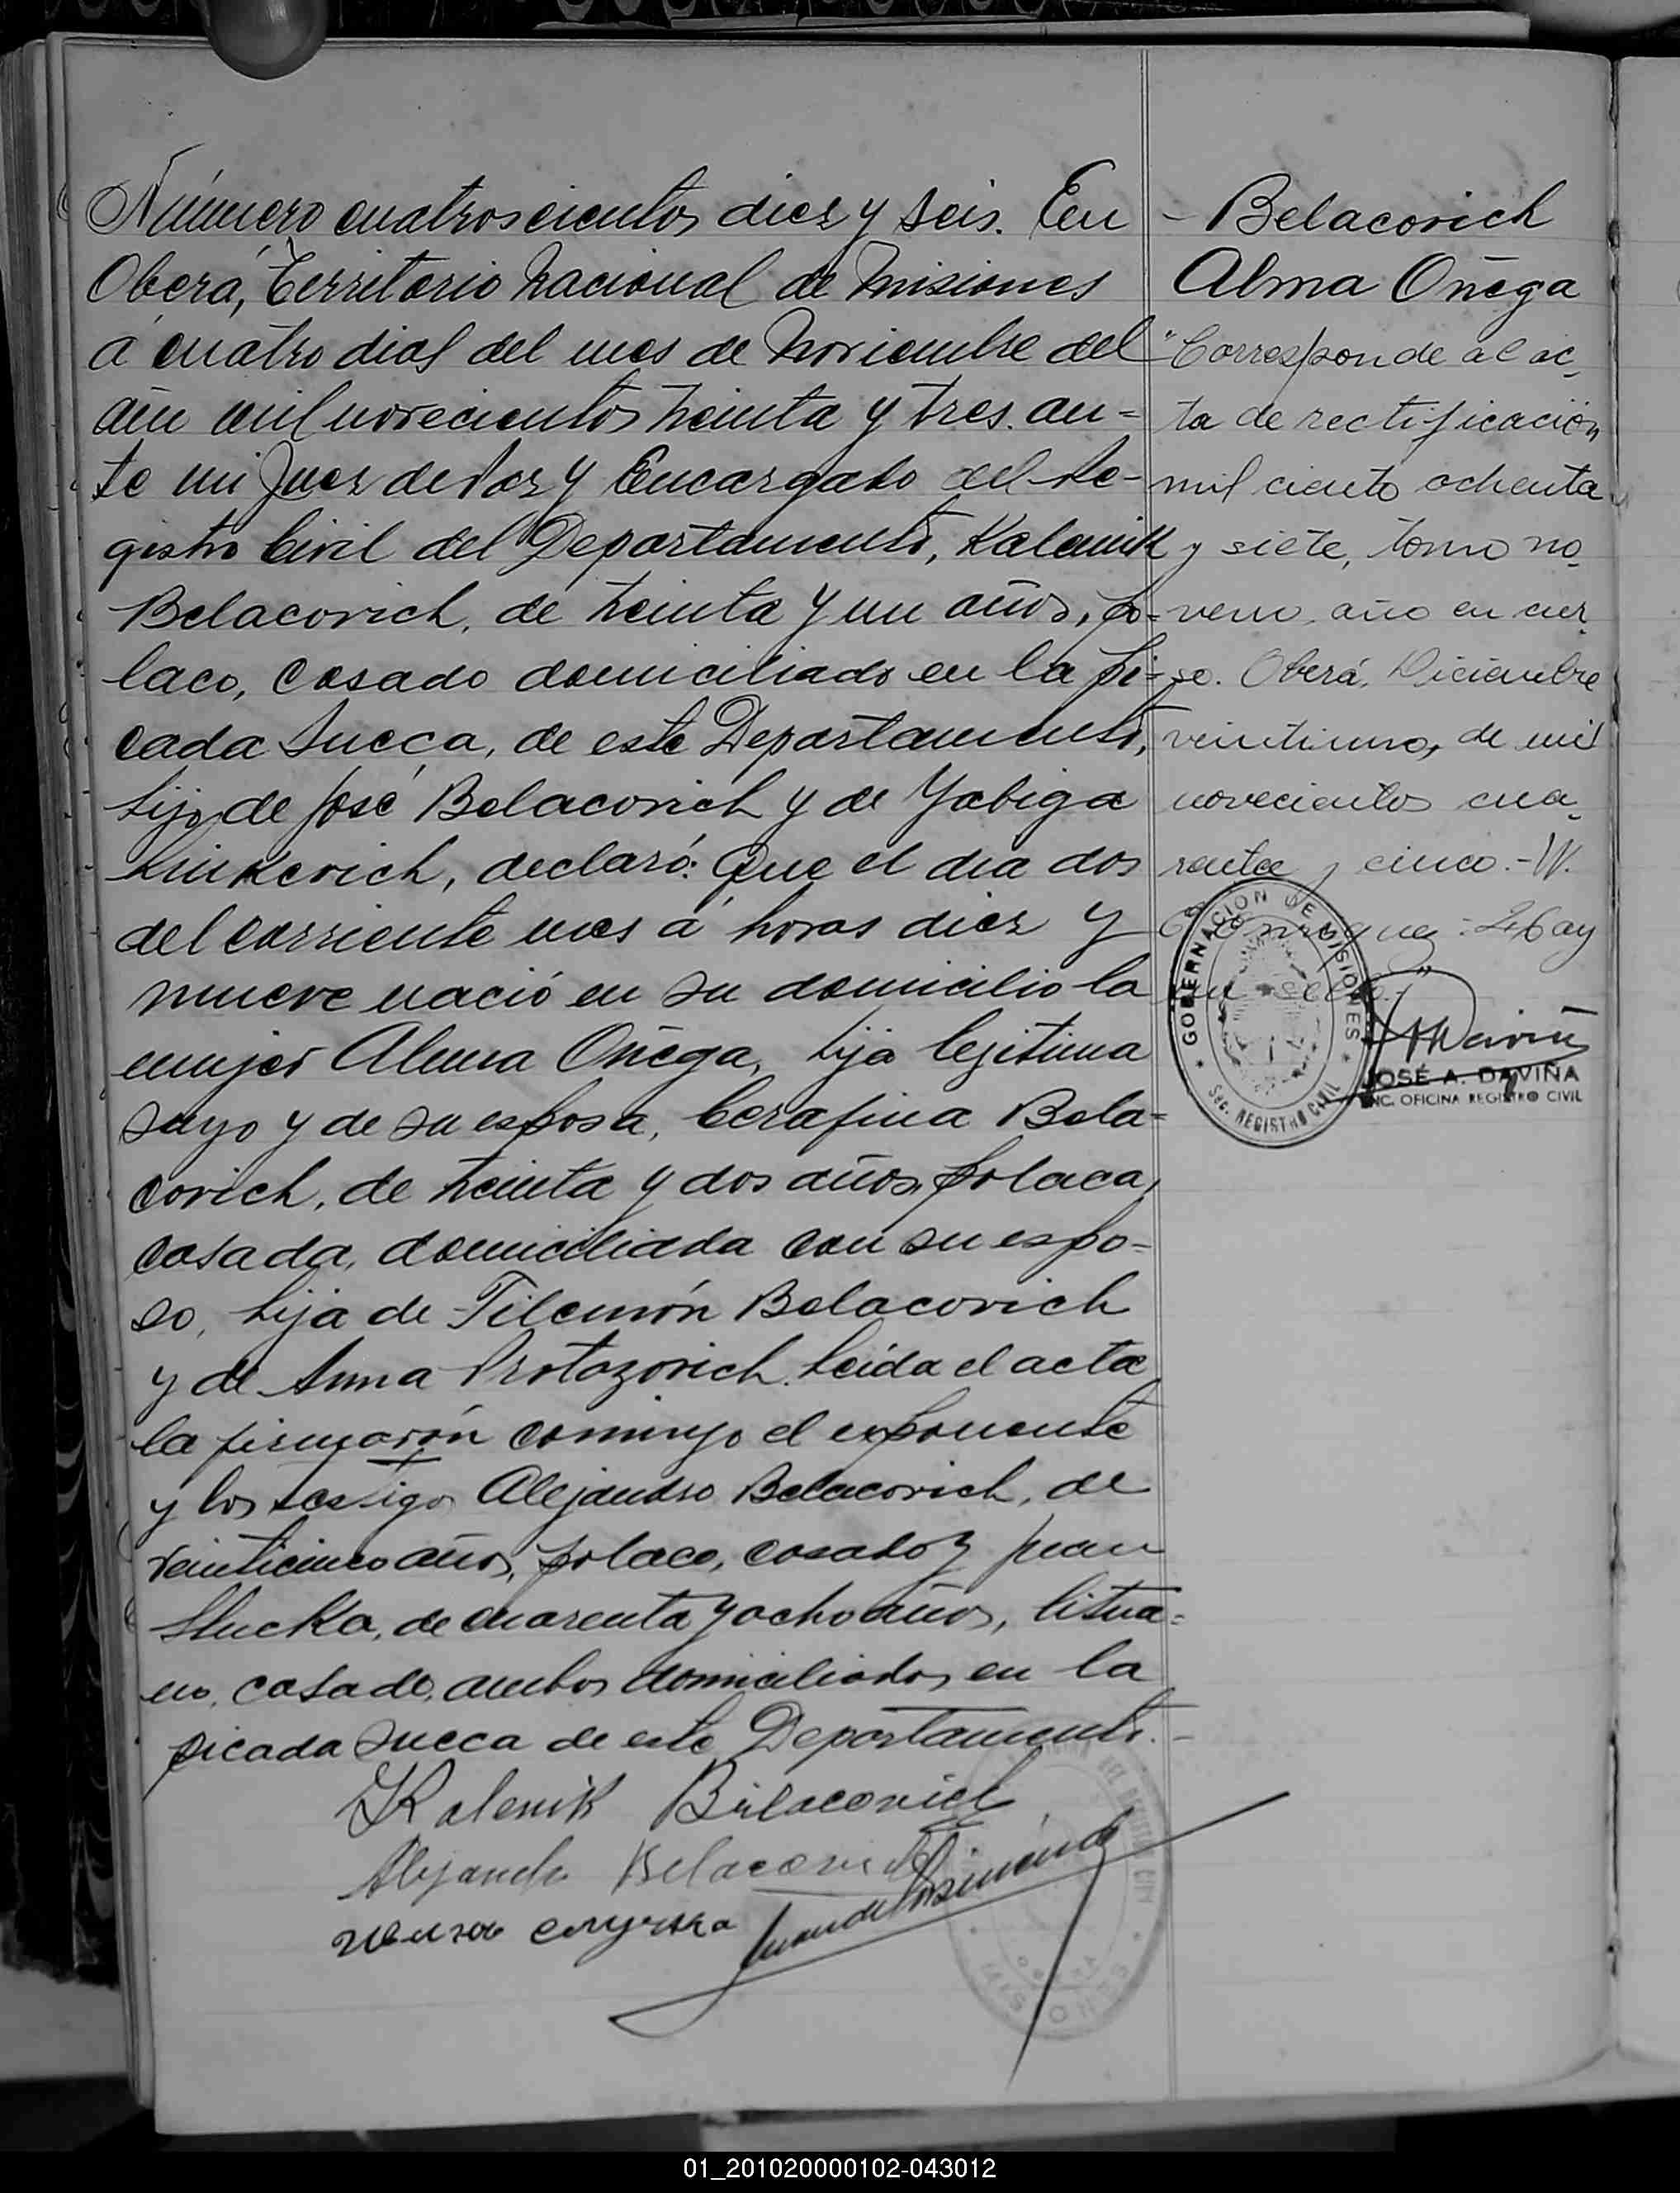 Número cuatroscientos diez y seis. En
Oberá, Territorio Nacional de Misiones
á cuatro dias del mes de Noviembre del
año mil novecientos treinta y tres. an=
te mi Juez de Paz y Encargado del Re-
gistro Civil del Departamento, Kalenik
Belacovich, de treinta y un años, po-
laco, casado domiciliado en la pi-
cada Sueca, de este Departamento,
hijo de José Belacovich y de Yabiga
Linkevich, declaró: Que el dia dos
del corriente mes á horas diez y
nueve nació en su domicilio la
mujer Alma Onega, hija legitima
suyo y de su esposa, Cerafina Bela=
covich, de treinta y dos años, polaca,
casada, domiciliada con su espo-
so, hija de Filemón Belacovich
y de Anna Protazovich. Leida el acta
la firmaron conmigo el exponente
y los testigos Alejandro Belacovich, de
veinticinco años, polaco, casado y Juan
Slucka, de cuarenta y ocho años, litua=
no, casado, ambos domiciliados en la
picada Sueca de este Departamento.-
Kalenik Bielacovich
Alejandro Belacovich
- Belacovich
Alma Onega
"Corresponde al ac-
ta de rectificación
mil ciento ochenta
y siete, tomo no-
veno, año en cur-
so. Oberá, Diciembre
veintiuno, de mil
novecientos cua-
renta y cinco.- W.
Hay
un sello."
GOBERNACION DE MISIONES
SEC. REGISTRO CIVIL
JOSÉ A. DAVIÑA
ENC. OFICINA REGISTRO CIVIL
01_201020000102-043012